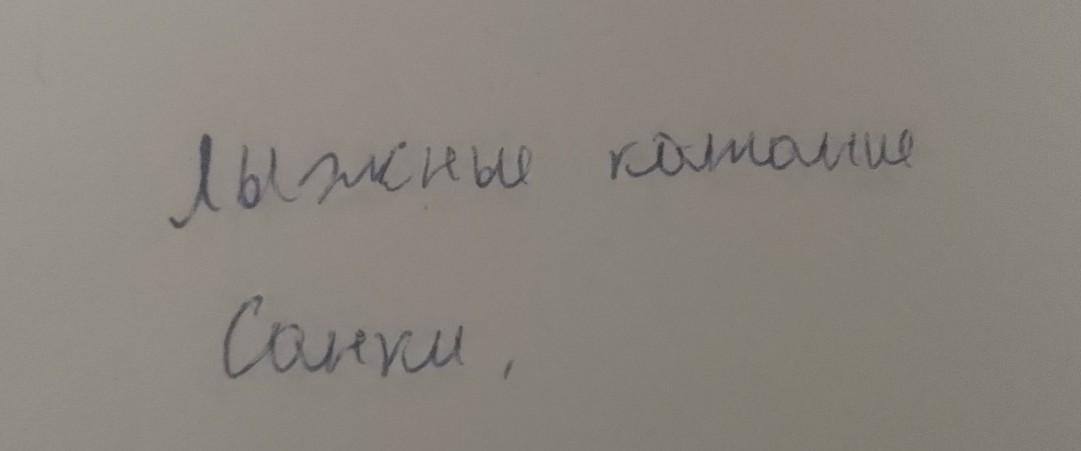 Лыжные катание
Санки,